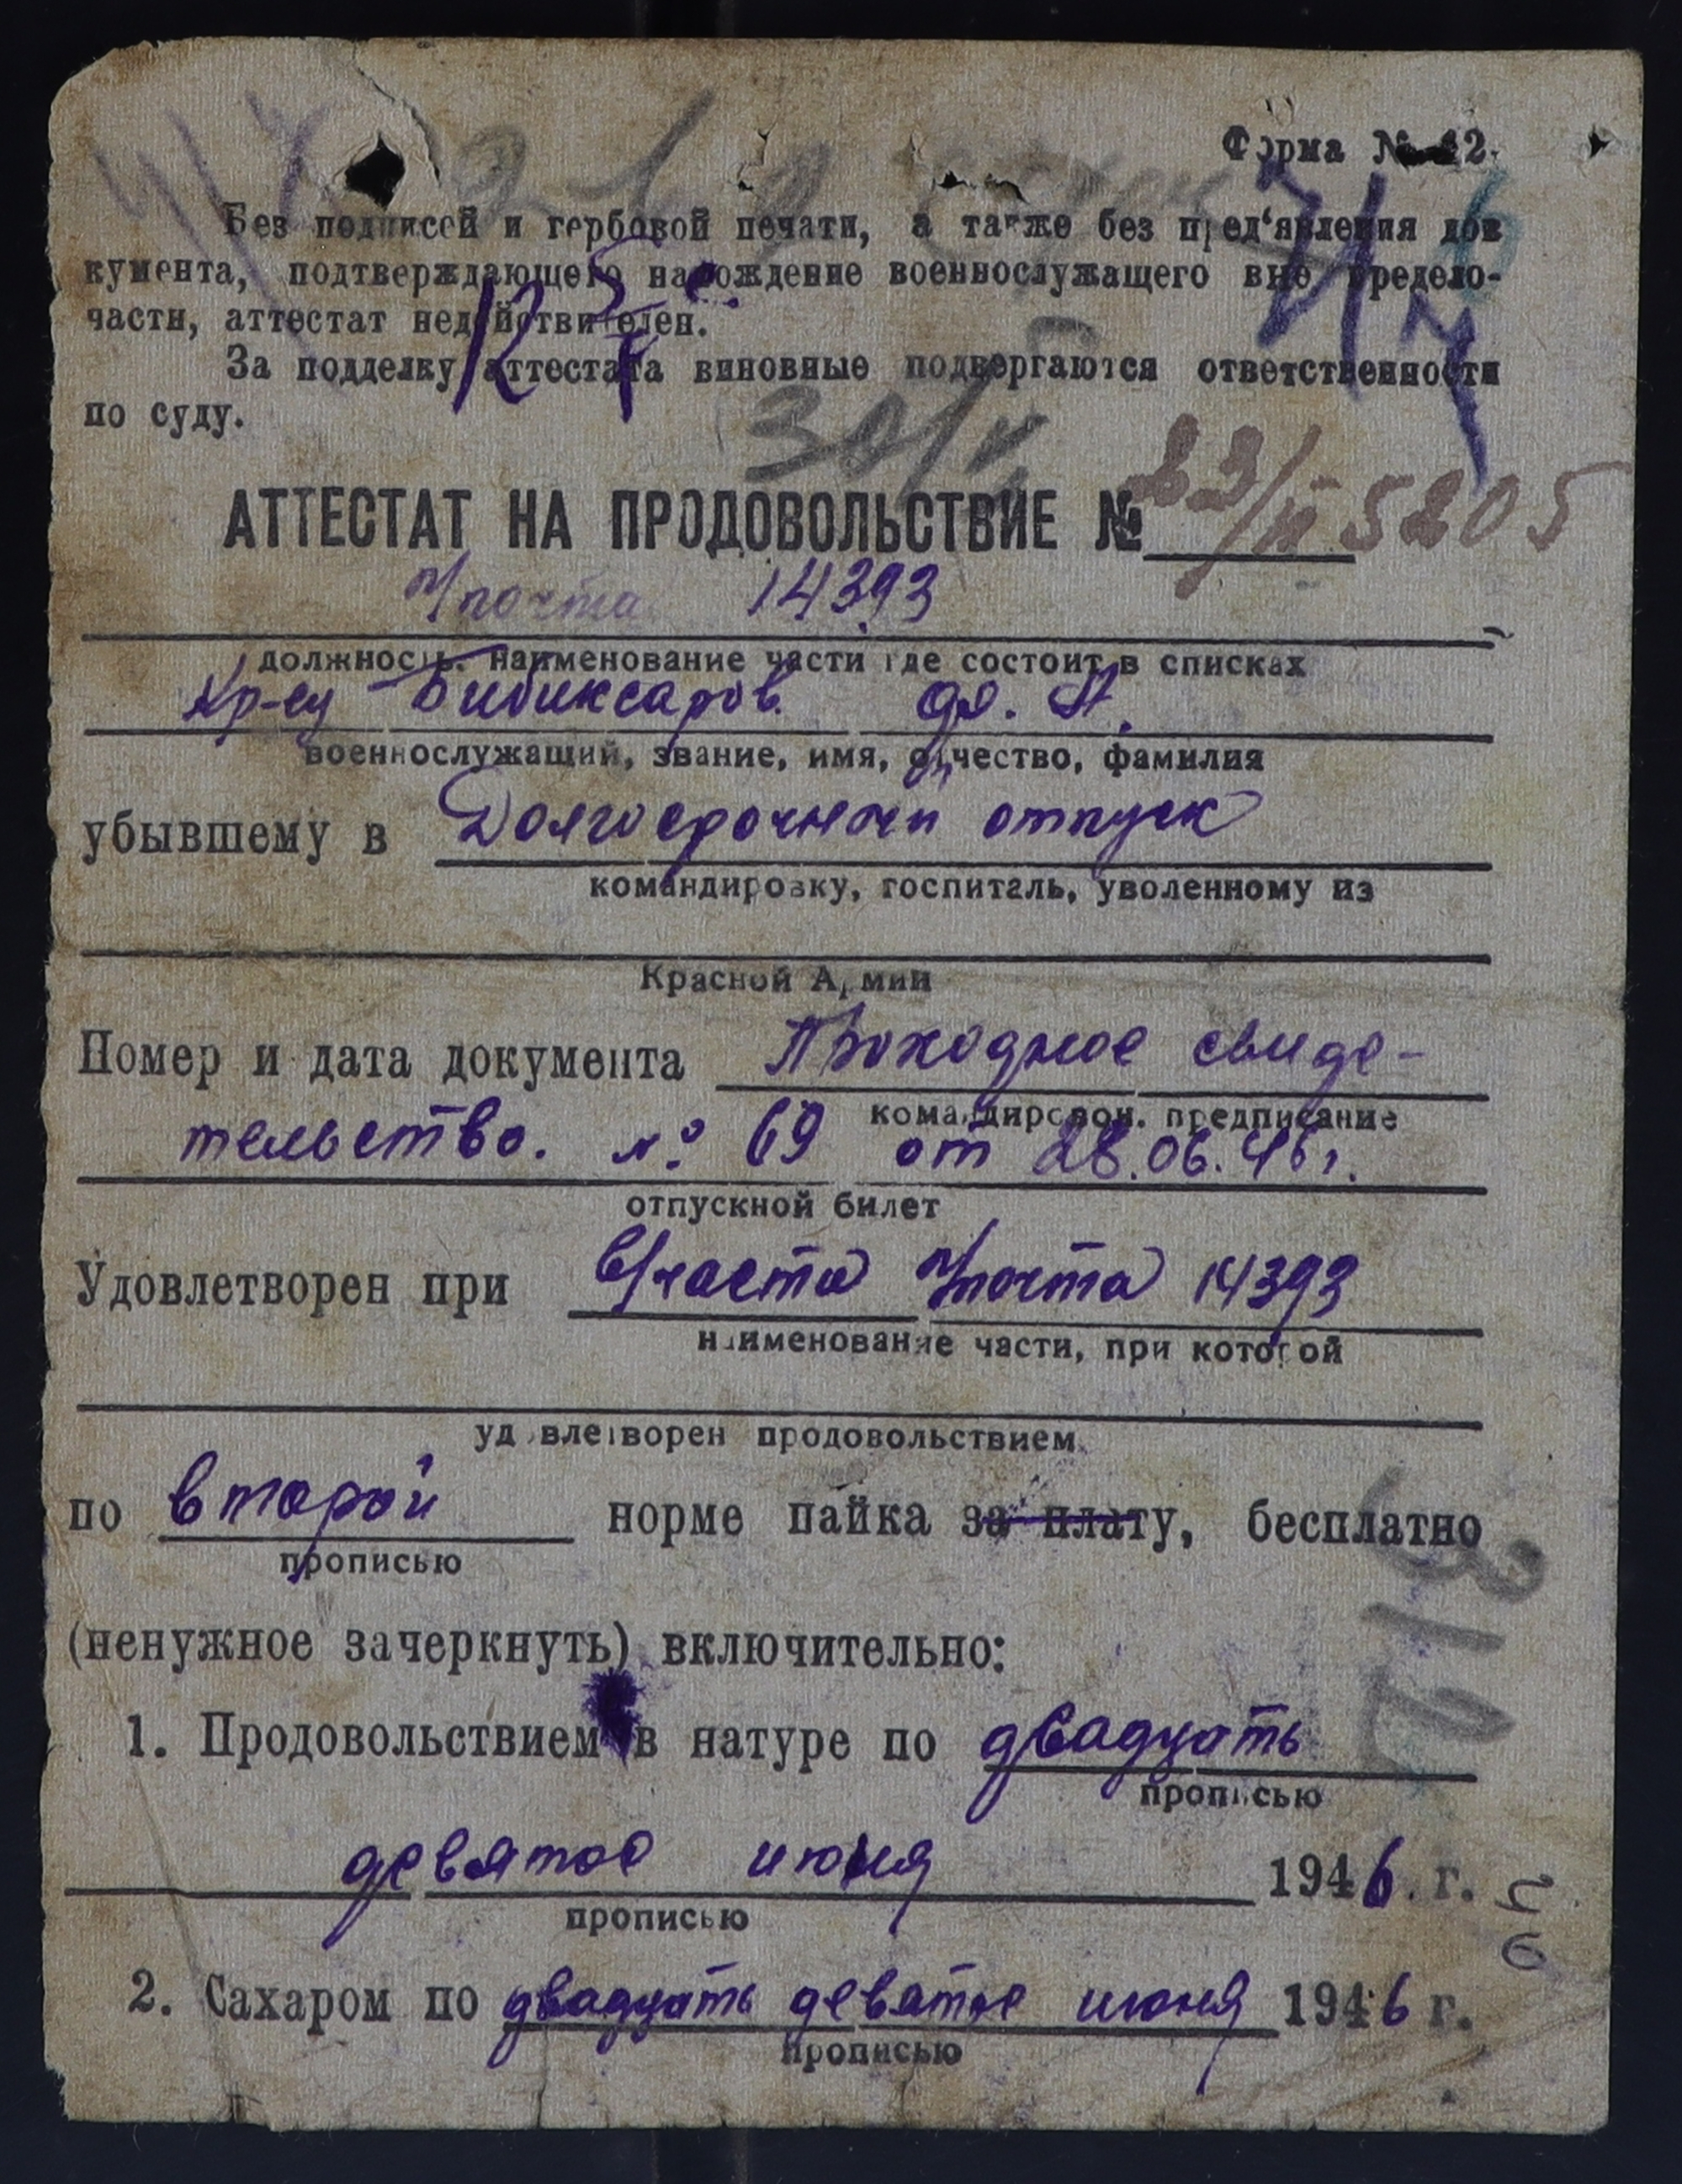 Форма № 12.
Без подписей и гербовой печати, а также без пред‘явления док
кумента, подтверждающего нахождение военнослужащего вне пределo-
части, аттестат недействителен.
За подделку аттестата виновные подвергаются ответственности
по суду.
12
30/V
23/VI 5205
АТТЕСТАТ НА ПРОДОВОЛЬСТВИЕ №
п/почта 14393
должность, наименование части где состоит в списках
Кр-еу Бибиксаров
военнослужащий, звание, имя, отчество, фамилия
убывшему в Долгосрочный отпуск
командировку, госпиталь, уволенному из
Красной Армии
Номер и дата документа Проходное свиде-
командировон. предписание
тельство. № 69 от 28.06.46 г.
отпускной билет
Удовлетворен при В/части п/почта 14393
наименование части, при которой
удовлетворен продовольствием
по второй норме пайка за плату, бесплатно
прописью
(ненужное зачеркнуть) включительно:
1. Продовольствием в натуре по двадцать
прописью
девятое июня 1946 г.
прописью
2. Сахаром по двадцать девятое июня 1946 г.
прописью